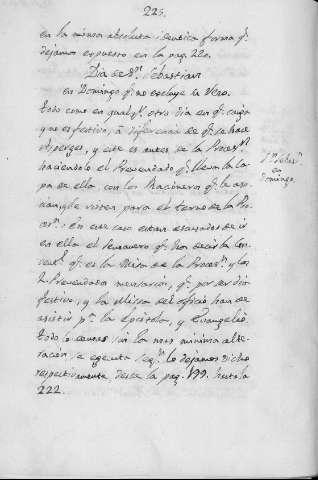 225.
en la misma absoluta, identica forma qe.
dejamos expuesto en la pag. 220.
Dia de Sn. Sebastian
en Domingo qe. no excluye la Vero.
todo como en qualqr. otro dia en qe. caiga
y que es festivo, à diferencia de qe. se hace
Asperges, y este es antes de la Procesn.
haciendolo el Prevendado qe. lleva la ca-
pa de ella, con los Racioneros qe. la aco-
para el terno de la Pro-
sn. En este caso estan escusados de ir
en ella el qe. ha de decir la Con-
qe. es la Misa de la Procesn. y los
2. Prevendados qe. por ser dia
festivo, y la Missa del oficio, han de
asistir pa. la Epistola, y Evangelio.
todo lo demas, sin la mas minima alte-
racion, se egecuta, lo dejamos dicho
respectivamente, desde la pag. 199. hasta la
222.
Sn. Sebasn.
en
Domingo